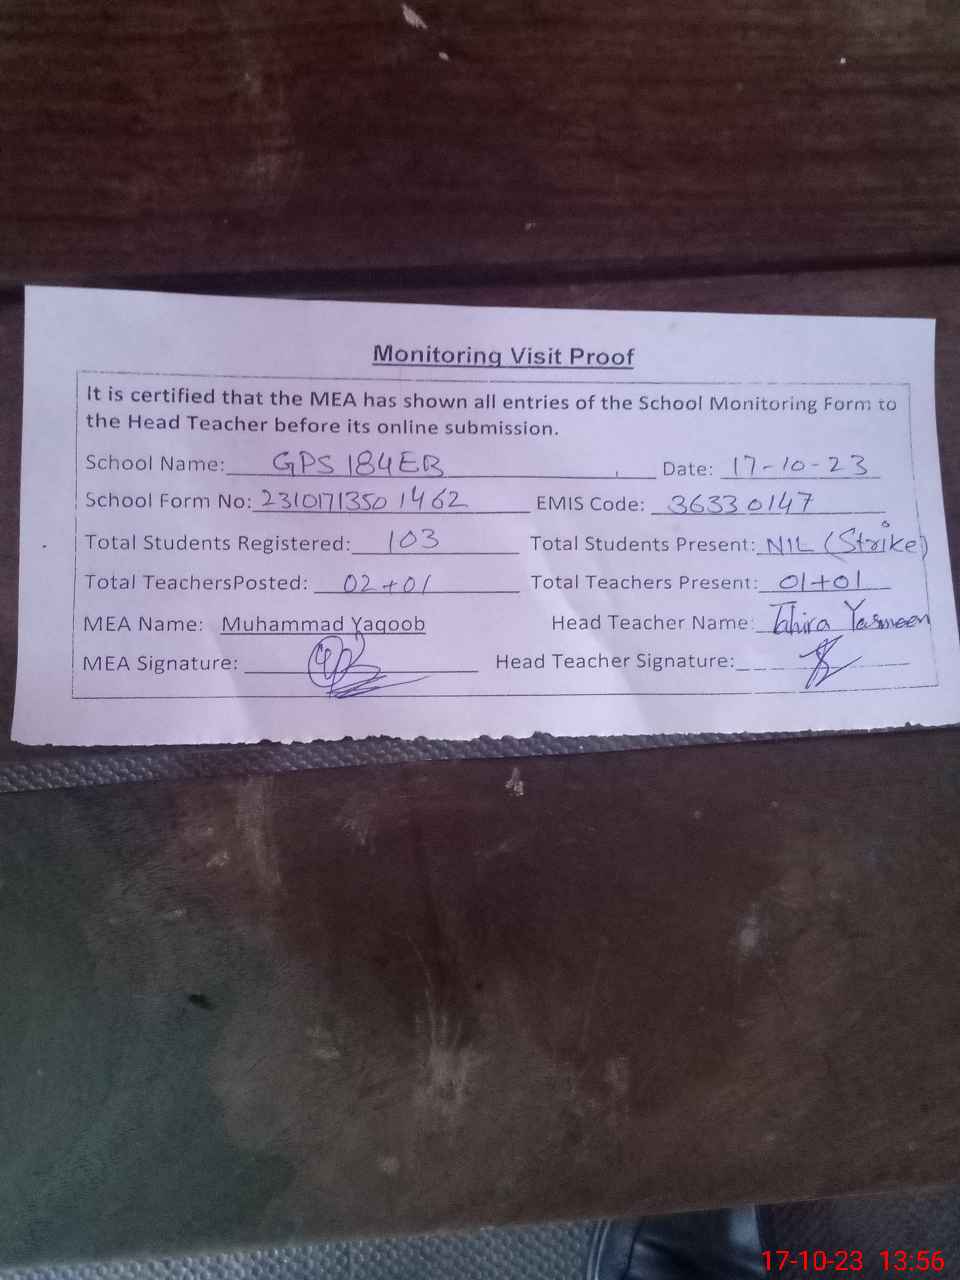 Monitoring Visit Proof
It is certified that the MEA has shown all entries of the School Monitoring Form to
the Head Teacher before its online submission.
School Name: GPS 184EB Date: 17-10-23
School Form No: 23101713501462 EMIS Code: 36330147
Total Students Registered: 103 Total Students Present: NIL (Strike)
Total TeachersPosted: 02+01 Total Teachers Present: 01+01
MEA Name: Muhammad Yaqoob Head Teacher Name: Tahira Yasmeen
MEA Signature: Head Teacher Signature:
17-10-23 13:56